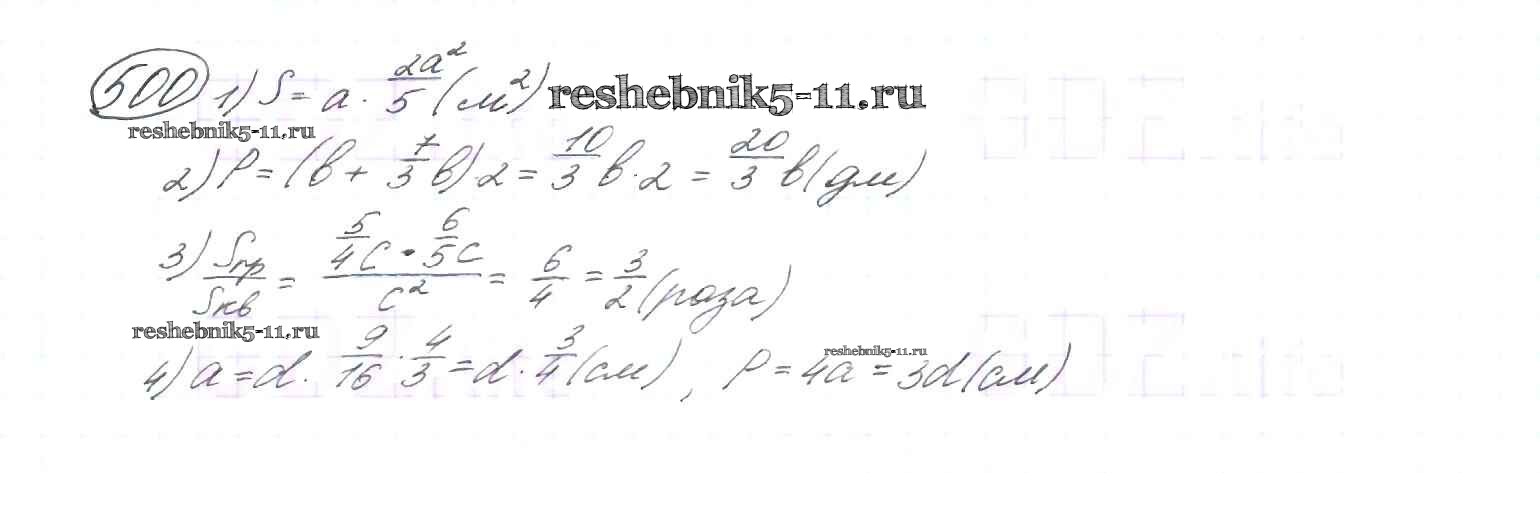 500 1) S = a · 2a²/5 (м²) reshebnik5-11.ru
reshebnik5-11.ru
2) P = (b + 7/3 b) · 2 = 10/3 b · 2 = 20/3 b (дм)
3) Sпр/Sкв = (5/4 c · 6/5 c)/c² = 6/4 = 3/2 (раза)
reshebnik5-11.ru
4) a = d · 9/16 · 4/3 = d · 3/4 (см), P = 4a = 3d (см)
reshebnik5-11.ru